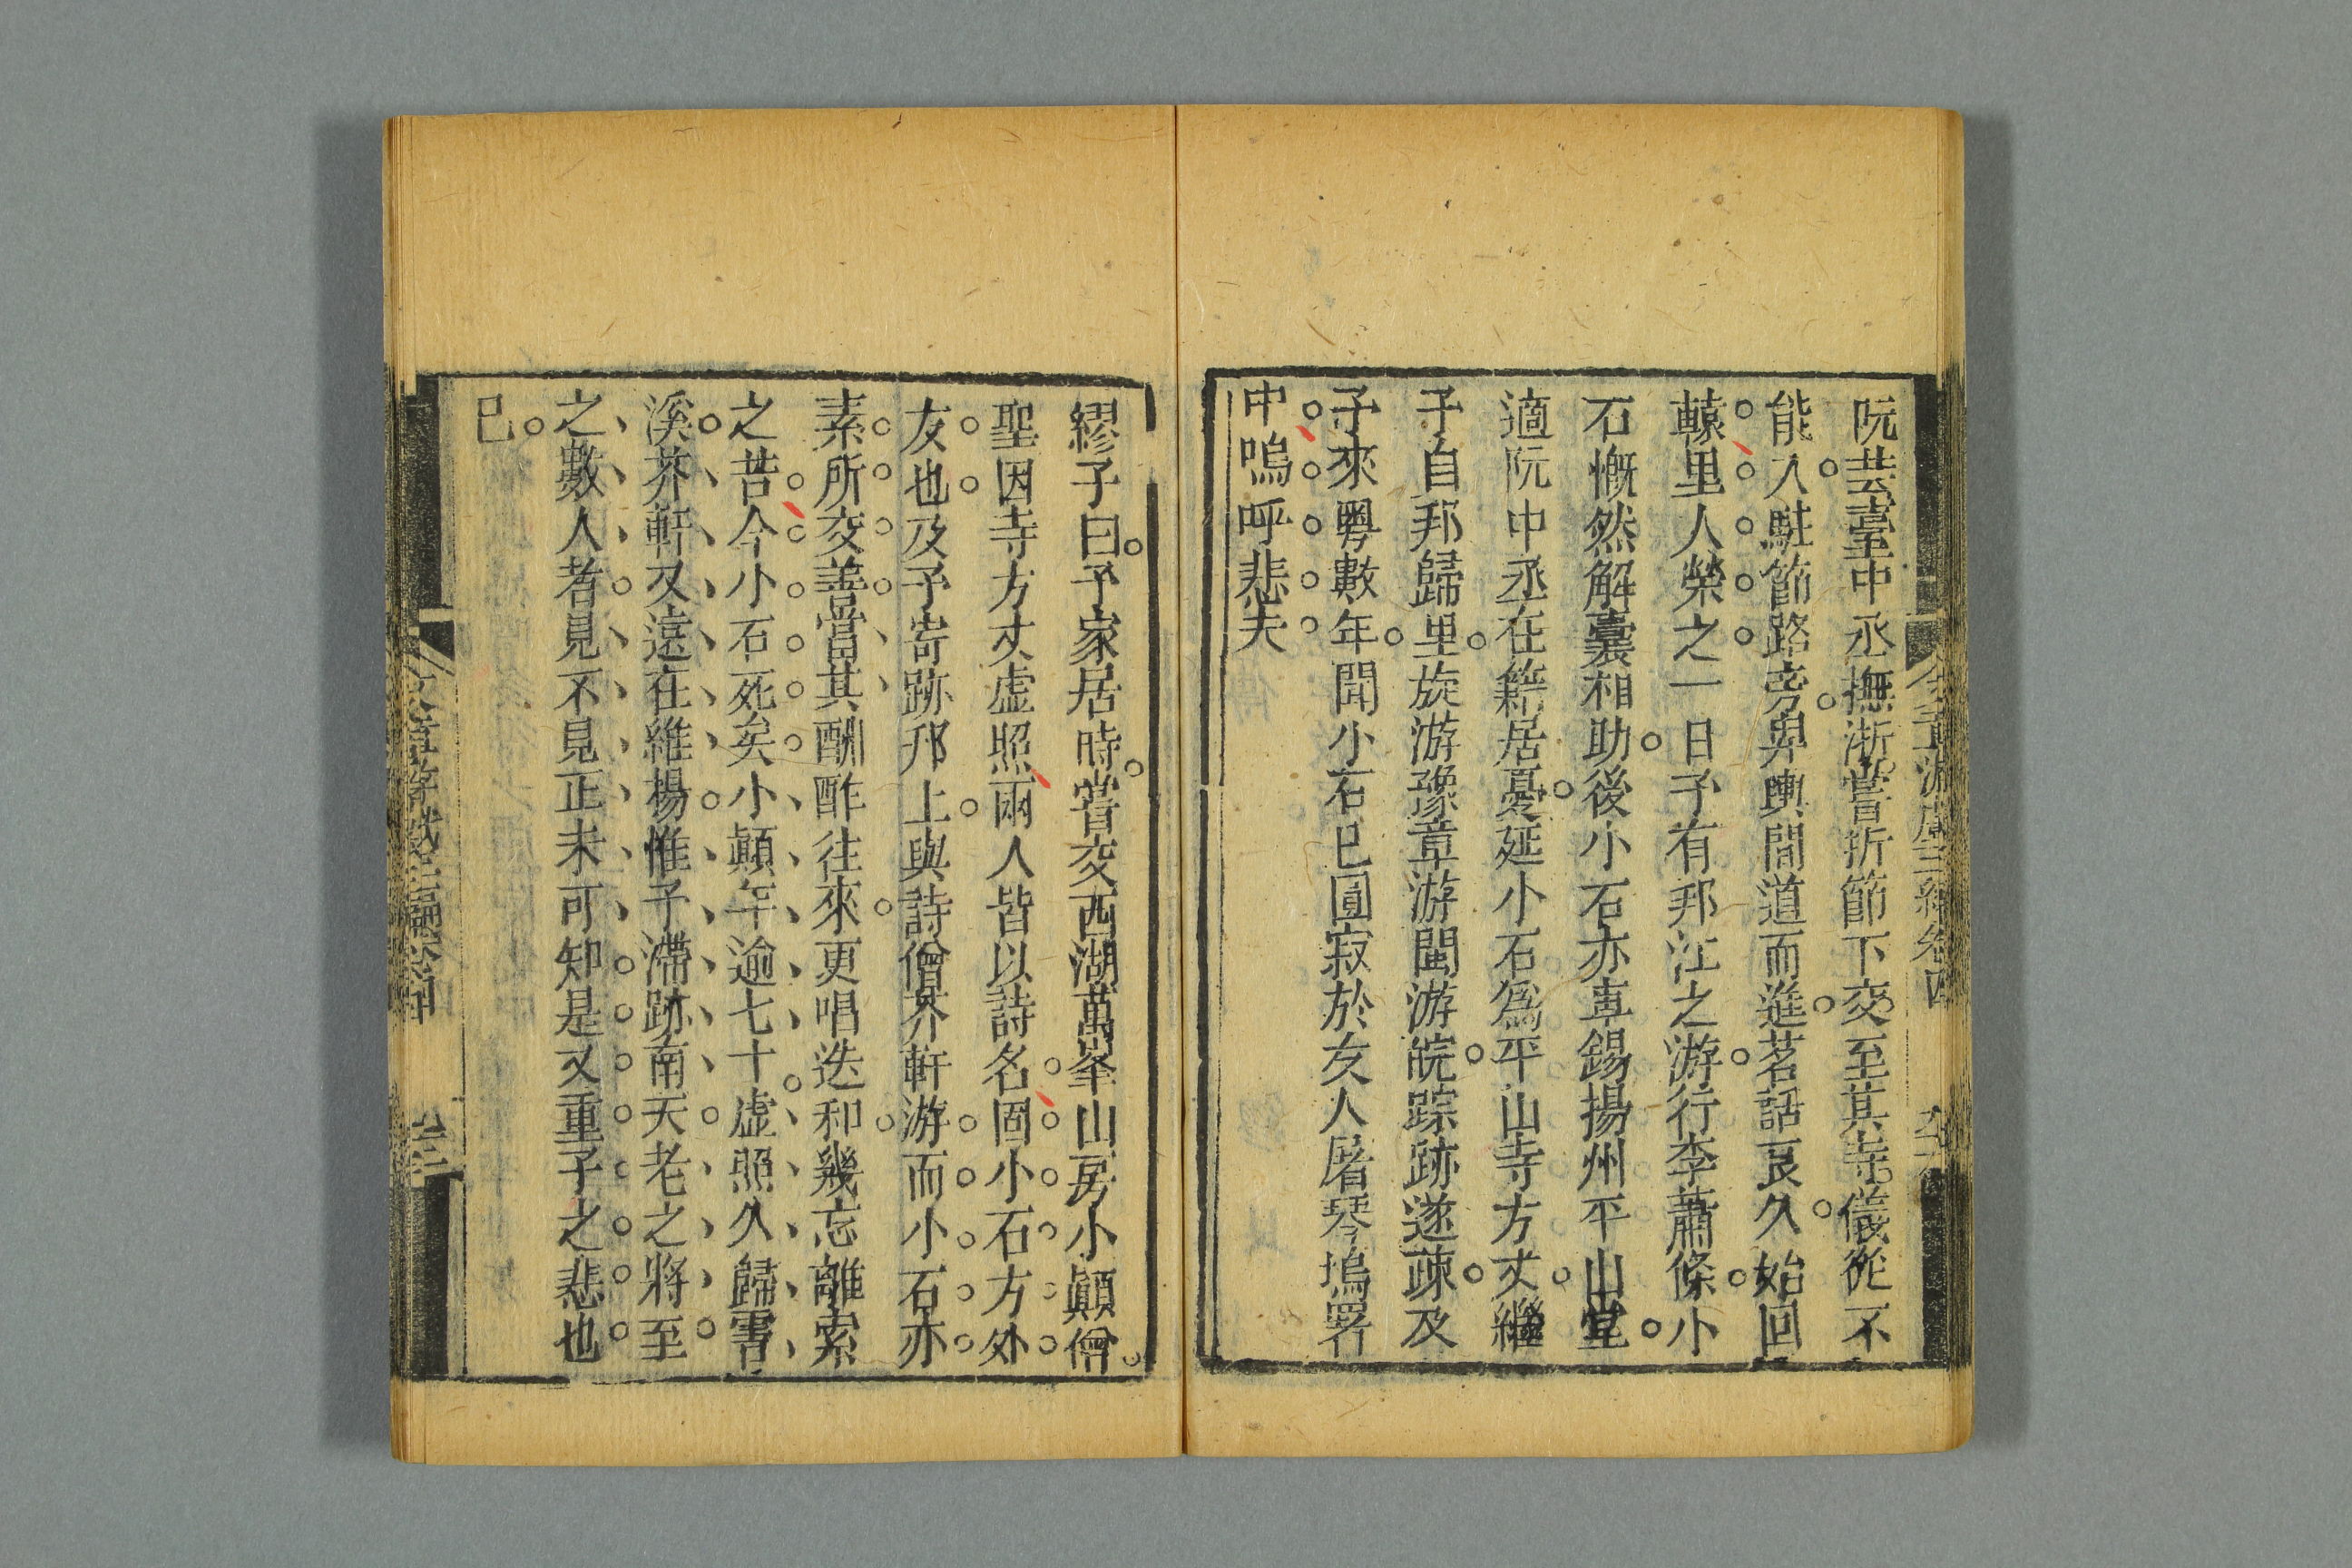 阮芸臺中丞撫浙嘗折節下交至其寺儀從不
能入駐節路旁舁輿間道而進茗話良久始回
轅里人榮之一日予有邗江之游行李蕭條小
石慨然解囊相助後小石亦卓錫揚州平山堂
適阮中丞在籍居憂延小石爲平山寺方丈繼
予自邗歸里旋游豫章游閩游皖踪跡遂疎及
予來粵數年聞小石已圓寂於友人屠琴塢署
中嗚呼悲夫
繆子曰予家居時嘗交西湖萬峯山房小顚僧
聖因寺方丈虛照兩人皆以詩名固小石方外
友也及予寄跡邗上與詩僧芥軒游而小石亦
素所交善當其酬酢往來更唱迭和幾忘離索
之苦今小石死矣小顚年逾七十虛照久歸霅
溪芥軒又遠在維楊惟予滯跡南天老之將至
之數人者見不見正未可知是又重予之悲也
已